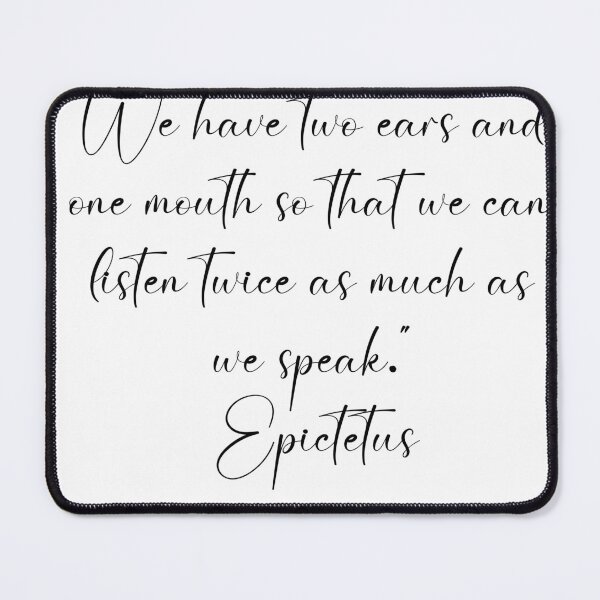 We have two ears and
one mouth so that we can
listen twice as much as
we speak."
Epictetus